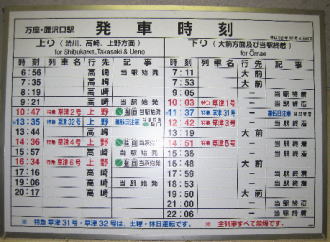 万座・鹿沢口駅 発車時刻
上り(渋川、高崎、上野方面)
for Shibukawa, Takasaki & Ueno
下り(大前方面及び当駅終着)
for Ōmae
時刻 列車名 行先 記事
時刻 列車名 行先 記事
6:56 高崎 当駅始発
7:11 大前
7:31 高崎
8:53 高崎 当駅始発
9:21 高崎 当駅始発
10:03 草津1号 当駅終着
10:47 草津2号 上野 当駅始発
11:37 草津31号
13:35 草津32号 上野
12:42 草津3号 当駅終着
13:44 高崎
13:19 大前
14:36 草津4号 上野 当駅始発
14:51 草津5号 当駅終着
15:56 高崎
16:34 草津6号 上野 当駅始発
17:16 高崎
18:53 当駅終着
19:20 高崎 当駅始発
19:50 大前
20:17 高崎
21:00 当駅終着
22:06 当駅終着
※ 特急 草津31号・草津32号は、土曜・休日運転です。
※ 上列車すべて禁煙です。